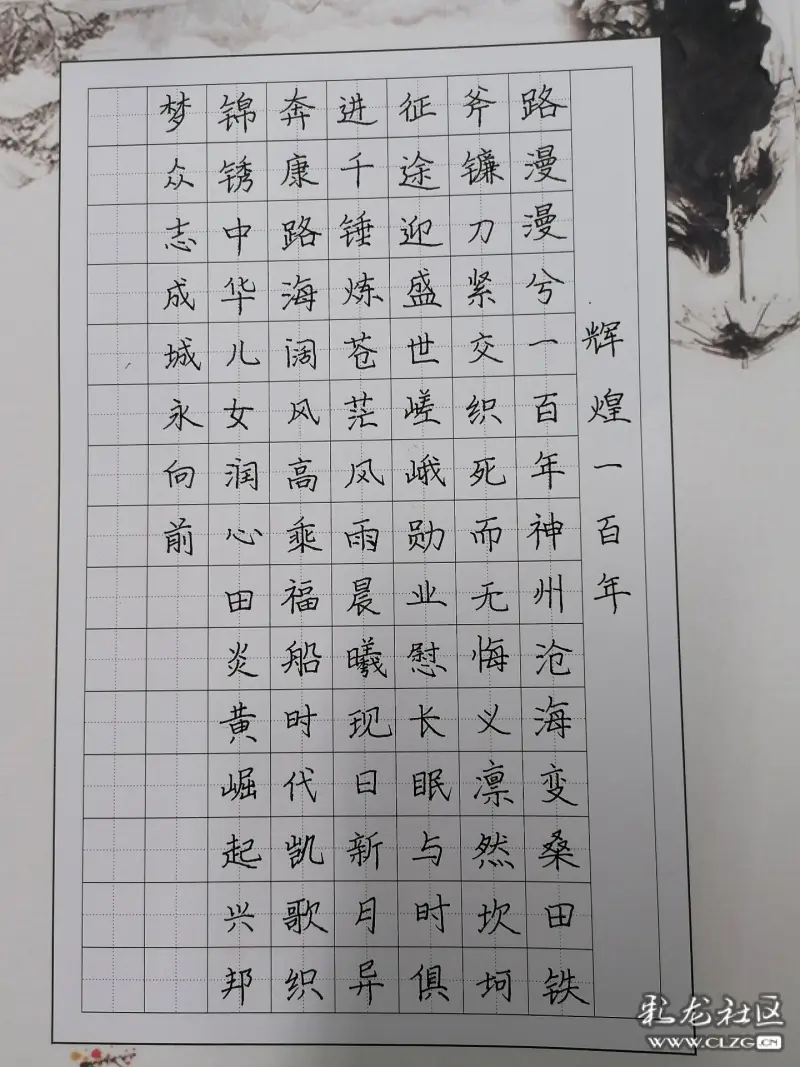 辉煌一百年
路漫漫兮一百年神州沧海变桑田铁
斧镰刀紧交织死而无悔义凛然坎坷
征途迎盛世嵯峨勋业慰长眠与时俱
进千锤炼苍茫风雨晨曦现日新月异
奔康路海阔风高乘福船时代凯歌织
锦锈中华儿女润心田炎黄崛起兴邦
梦众志成城永向前
彩龙社区
WWW.CLZG.CN